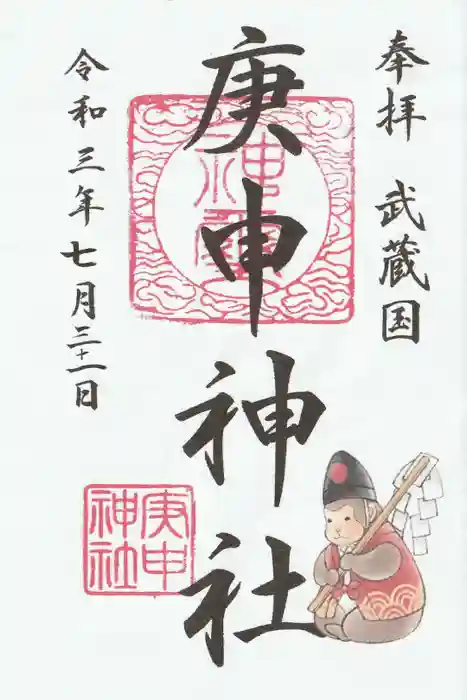 奉拝 武蔵国
庚申神社
令和三年七月三十一日
庚申
神社